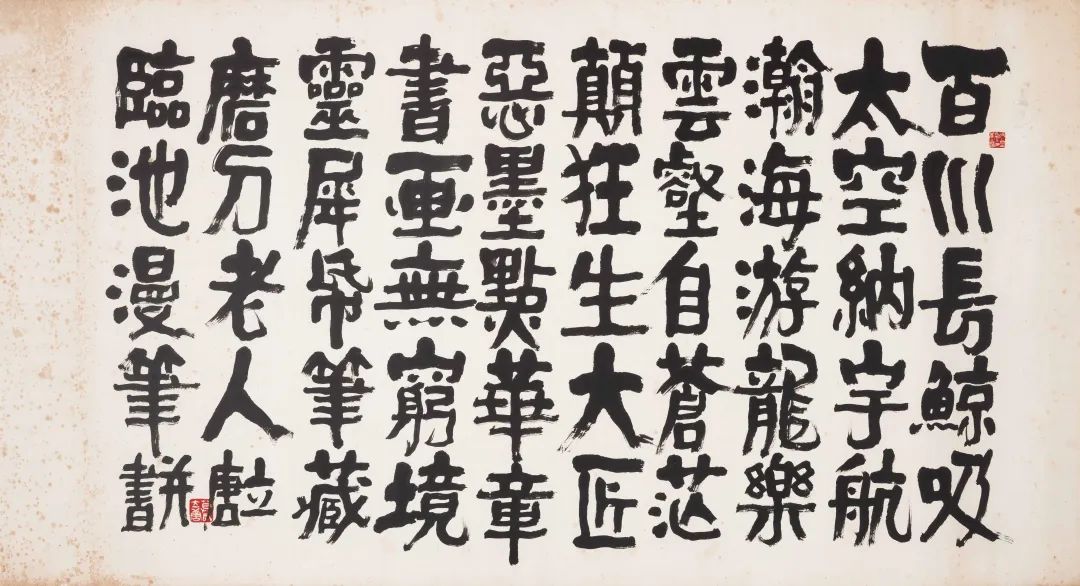 百川長鯨吸
太空納宇航
瀚海游龍樂
雲壑自蒼茫
顛狂生大匠
惡墨點華章
書画無窮境
靈犀帋筆藏
磨刀老人
臨池漫筆并書